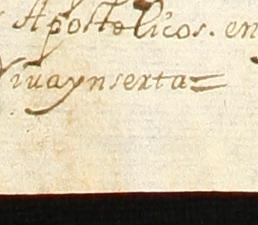 Apostolicos. en
iuaynserta=